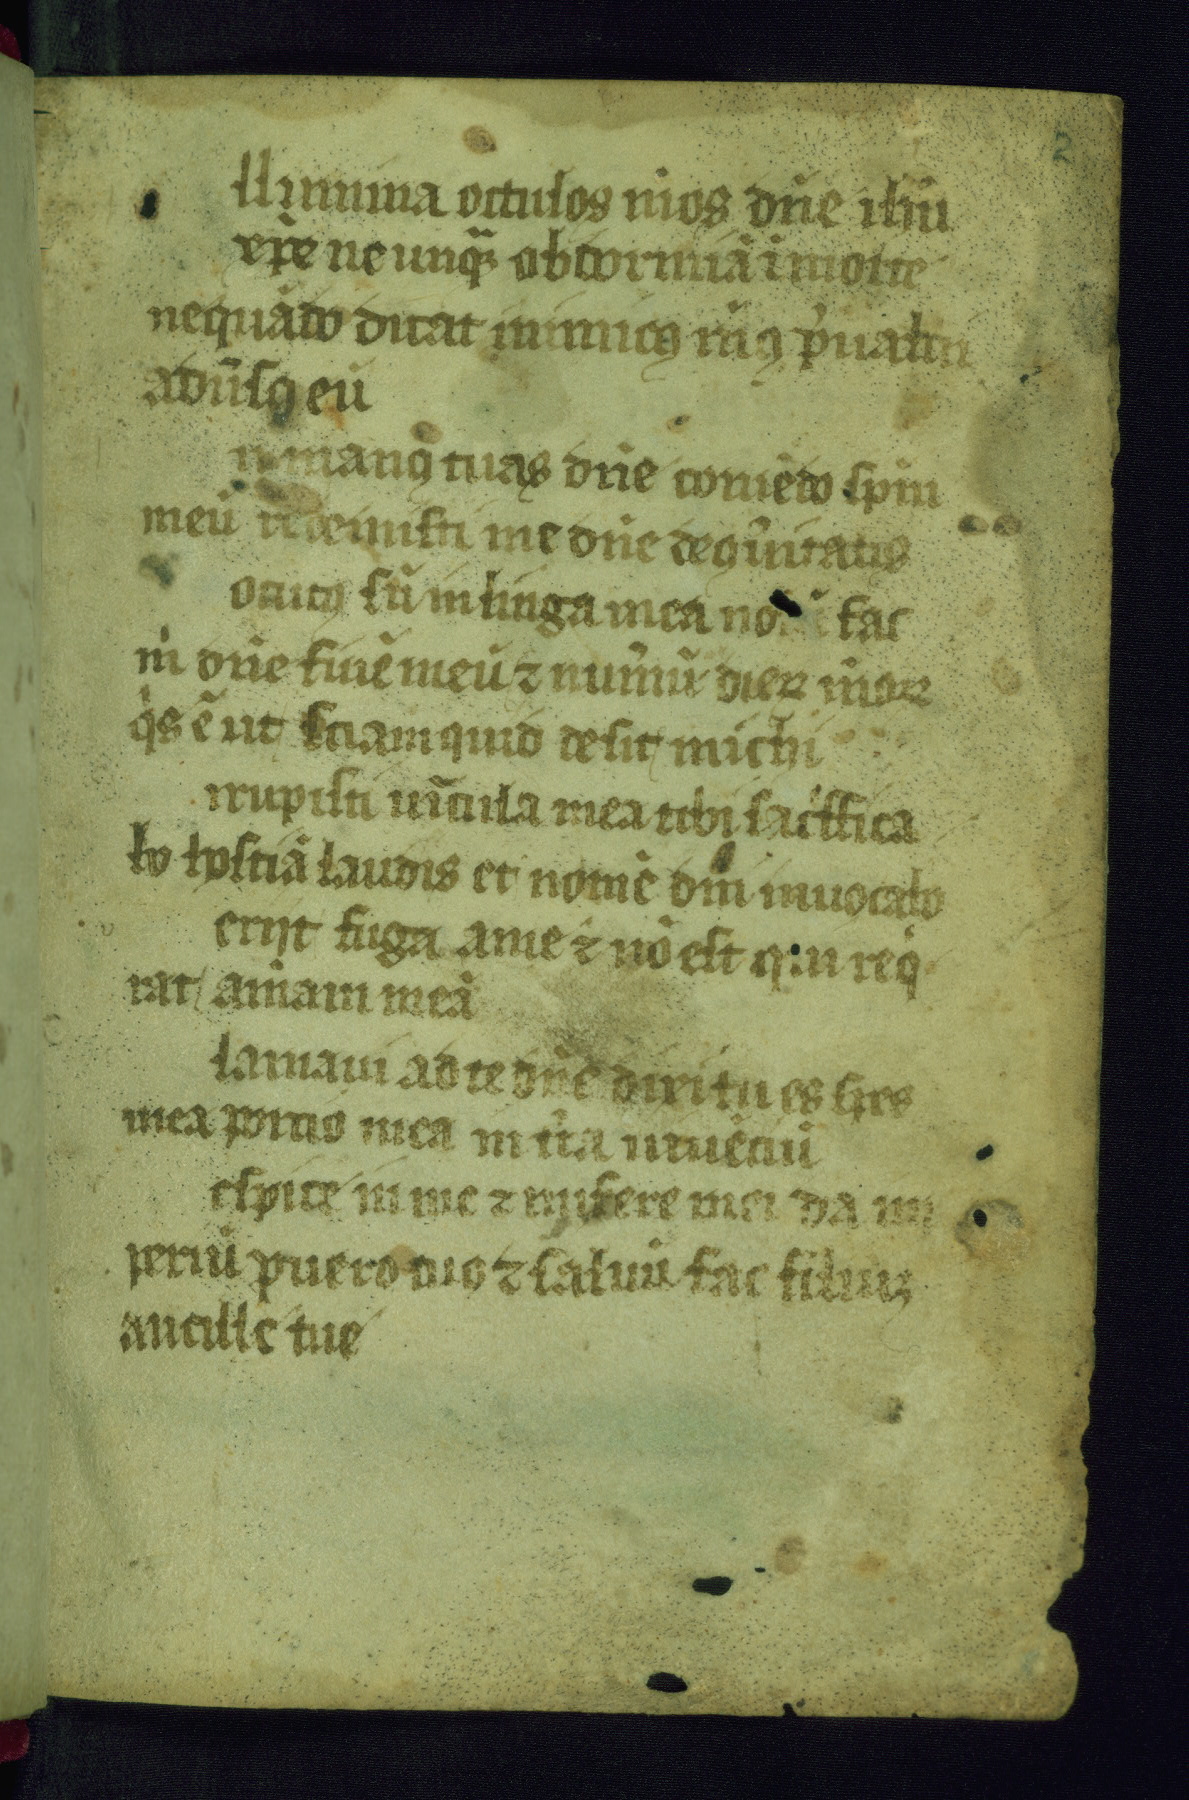 2
llumina occulos meos dñe ihũ
xp̃e ne unq̃ȝ obdormiã ĩ morte
nequãdo dicat inimicꝰ mẽꝰ p̃ualui
adũsꝰ eũ
n manꝰ tuas dñe comẽdo spm̃
meũ redemisti me dñe deꝰ ũitatis
ocutꝰ sũ in linga mea fac
m̃ dñe finẽ meũ ⁊ num̃ũ dieꝝ m̃oꝝ
q̃s ẽ ut sciam quid desit michi
irupisti uĩcula mea tibi sac̃ffica
bo hostiã laudis et nomẽ dñi inuocabo
eriit fuga a me ⁊ nõ est qui req̃
rat animam meã
lamaui ad te dñe dixi tu es spes
mea portio mea in t̃ra uiuẽciũ
espice in me ⁊ misere mei da im
periũ puero tuo ⁊ saluũ fac filiuȝ
ancille tue